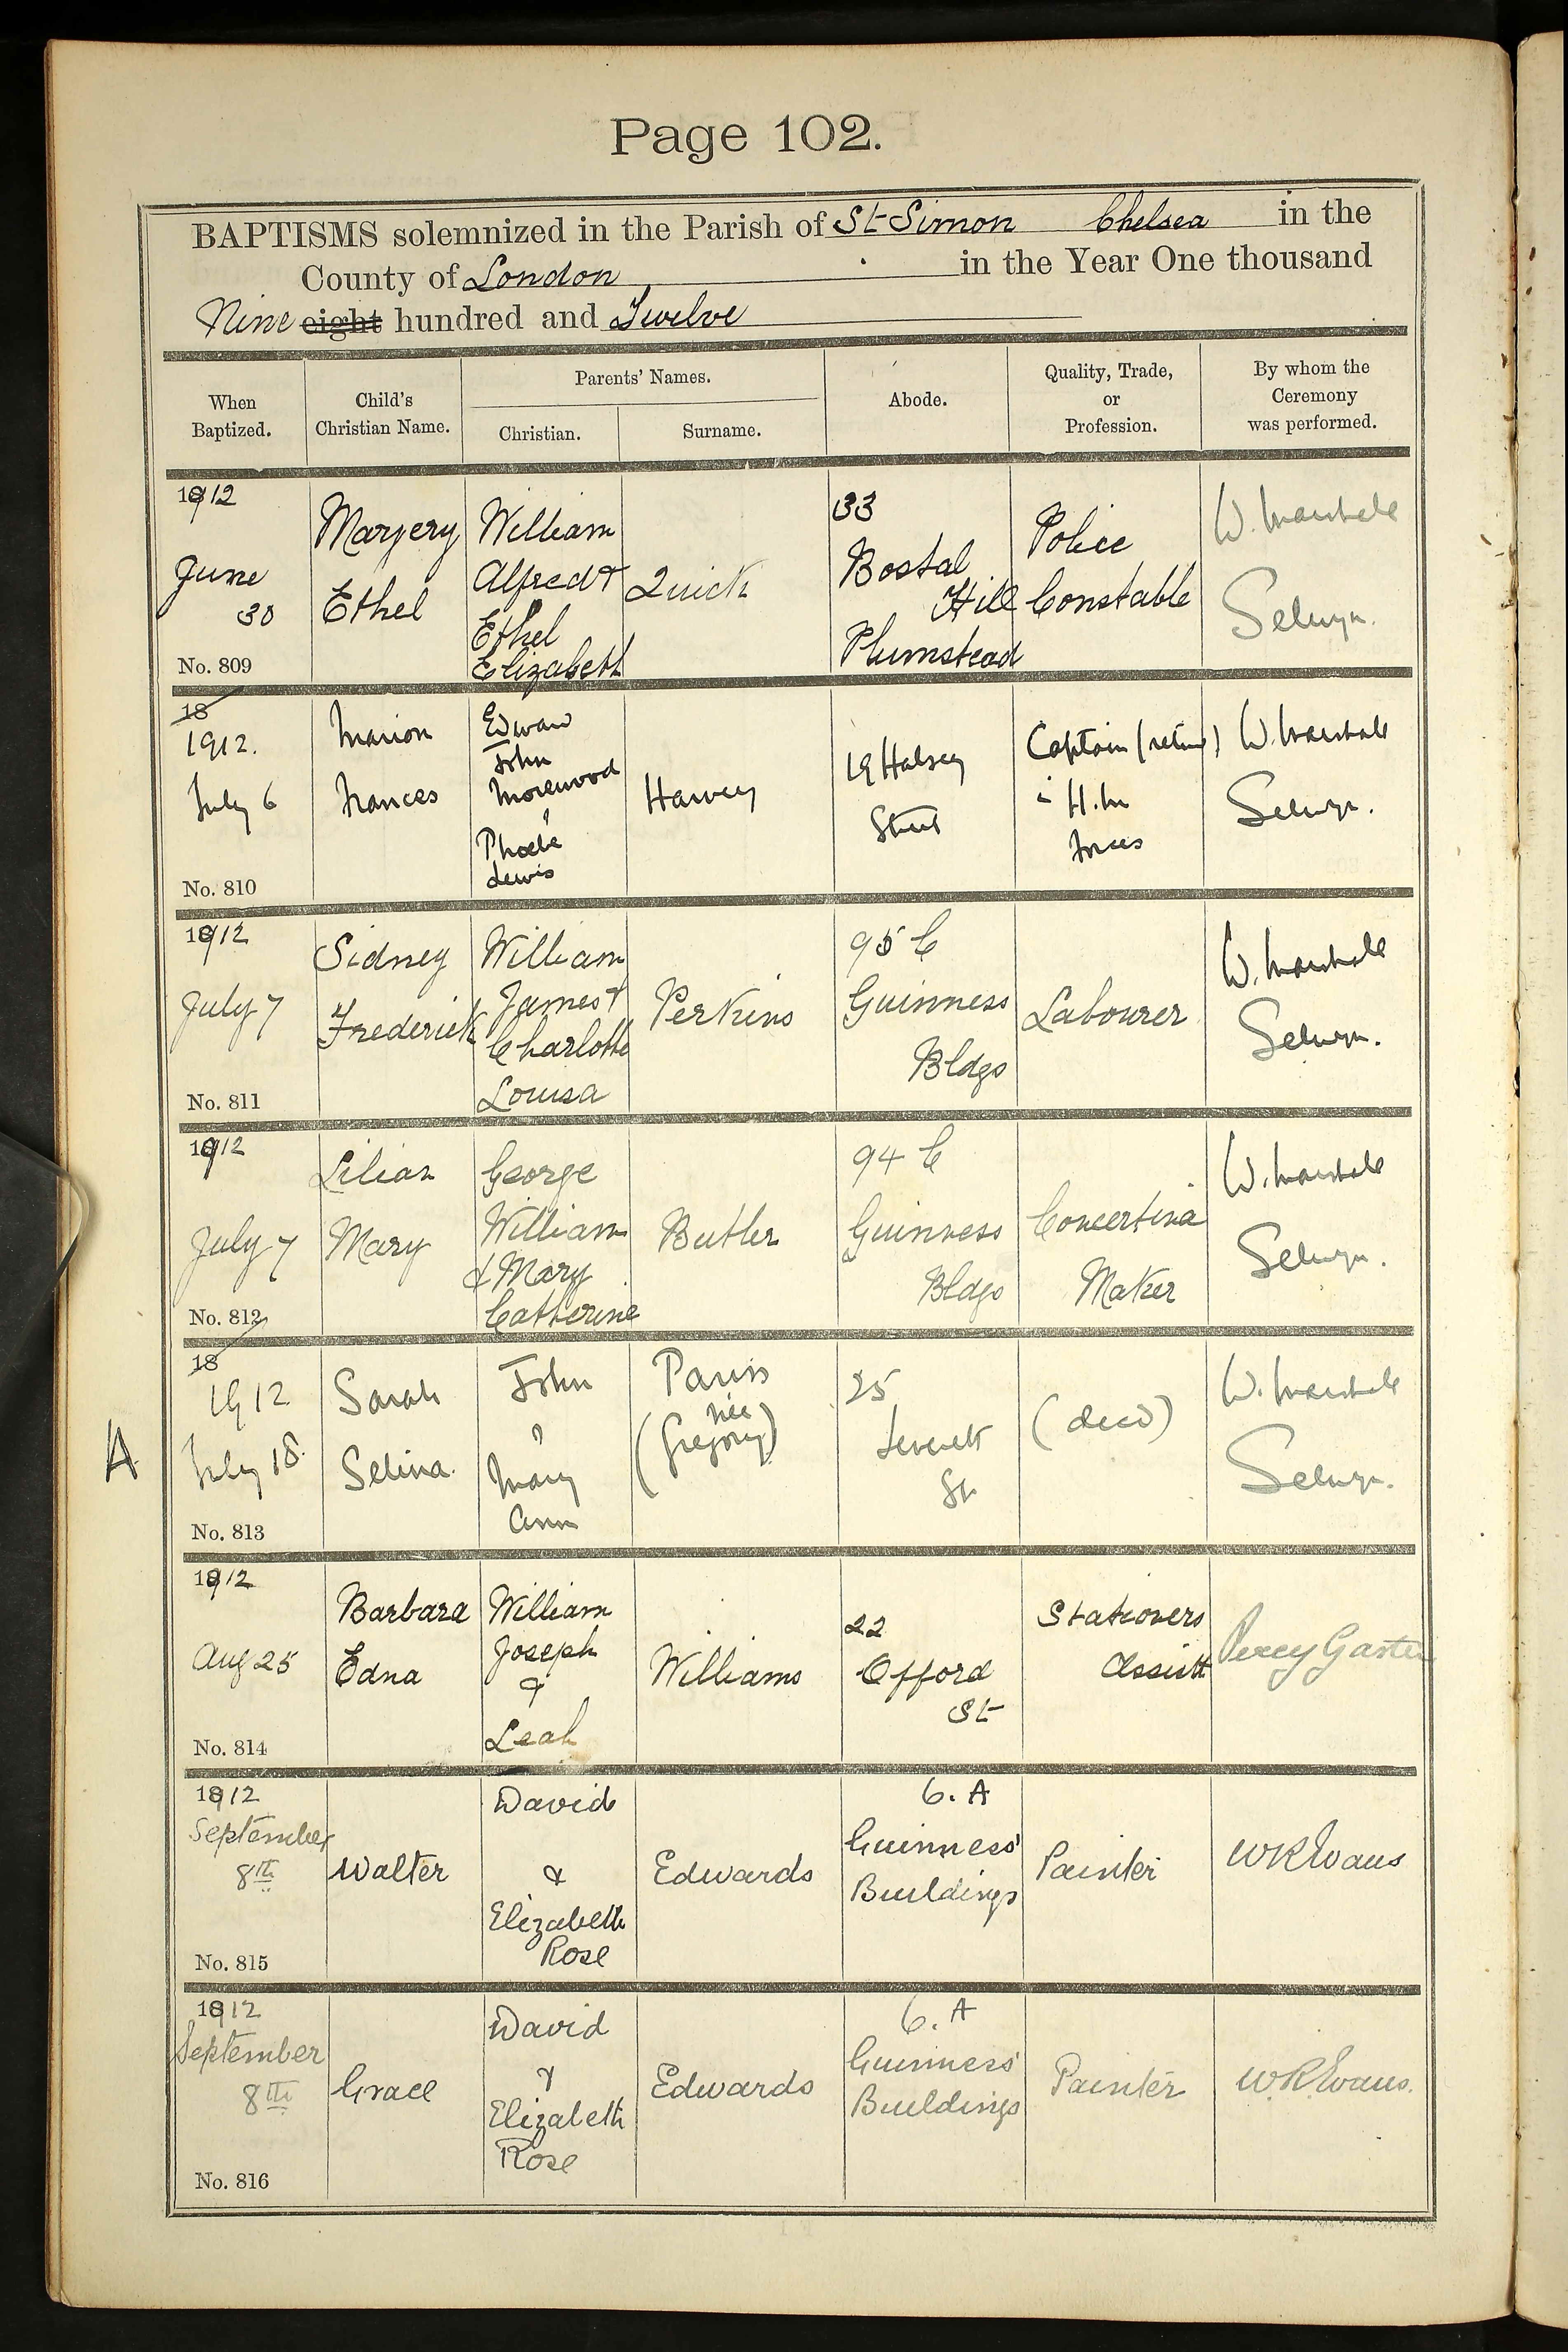 Page 102.
BAPTISMS solemnized in the Parish of St Simon Chelsea in the
County of London in the Year One thousand
Nine eight hundred and Twelve
When Baptized.
Child's Christian Name.
Parents' Names.
Christian.
Surname.
Abode.
Quality, Trade, or Profession.
By whom the Ceremony was performed.
1912
June
30
No. 809
Margery
Ethel
William
Alfred &
Ethel
Elizabeth
Quick
33
Bostal
Hill
Plumstead
Police
Constable
W. Marshall
Selwyn.
18
1912.
July 6
No. 810
Marion
Frances
Edward
John
Morewood
&
Phoebe
Lewis
Harvey
19 Halsey
Street
Captain (retired)
in H.M
Forces
W. Marshall
Selwyn.
1912
July 7
No. 811
Sidney
Frederick
William
James &
Charlotte
Louisa
Perkins
95 C
Guinness
Bldgs
Labourer
W. Marshall
Selwyn.
1912
July 7
No. 812
Lilian
Mary
George
William
& Mary
Catherine
Butler
94 C
Guinness
Bldgs
Concertina
Maker
W. Marshall
Selwyn.
A
18
1912
July 18.
No. 813
Sarah
Selina.
John
&
Mary
Ann
née
(Gregory)
25
Leverett
St
(decd)
W. Marshall
Selwyn.
1912
Aug 25
No. 814
Barbara
Edna
William
Joseph
&
Leah
Williams
22
Offord
St
Stationers
Assistt
Percy
1912
September
8th
No. 815
Walter
David
&
Elizabeth
Rose
Edwards
6. A
Guinness'
Buildings
Painter
WR Evans
1912
September
8th
No. 816
Grace
David
&
Elizabeth
Rose
Edwards
6. A
Guinness'
Buildings
Painter
W.R. Evans.